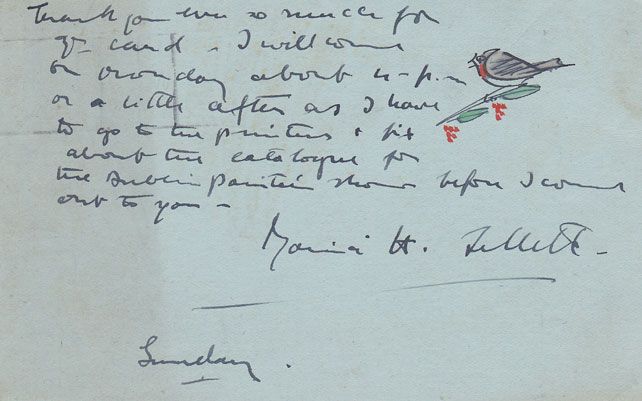 Thank you ever so much for
yr card - I will come
on Monday about 4-p.m
or a little after as I have
to go to the printers & fix
about the catalogue for
the Dublin Painters' show before I come
out to you -
H. Jellett -
Sunday.